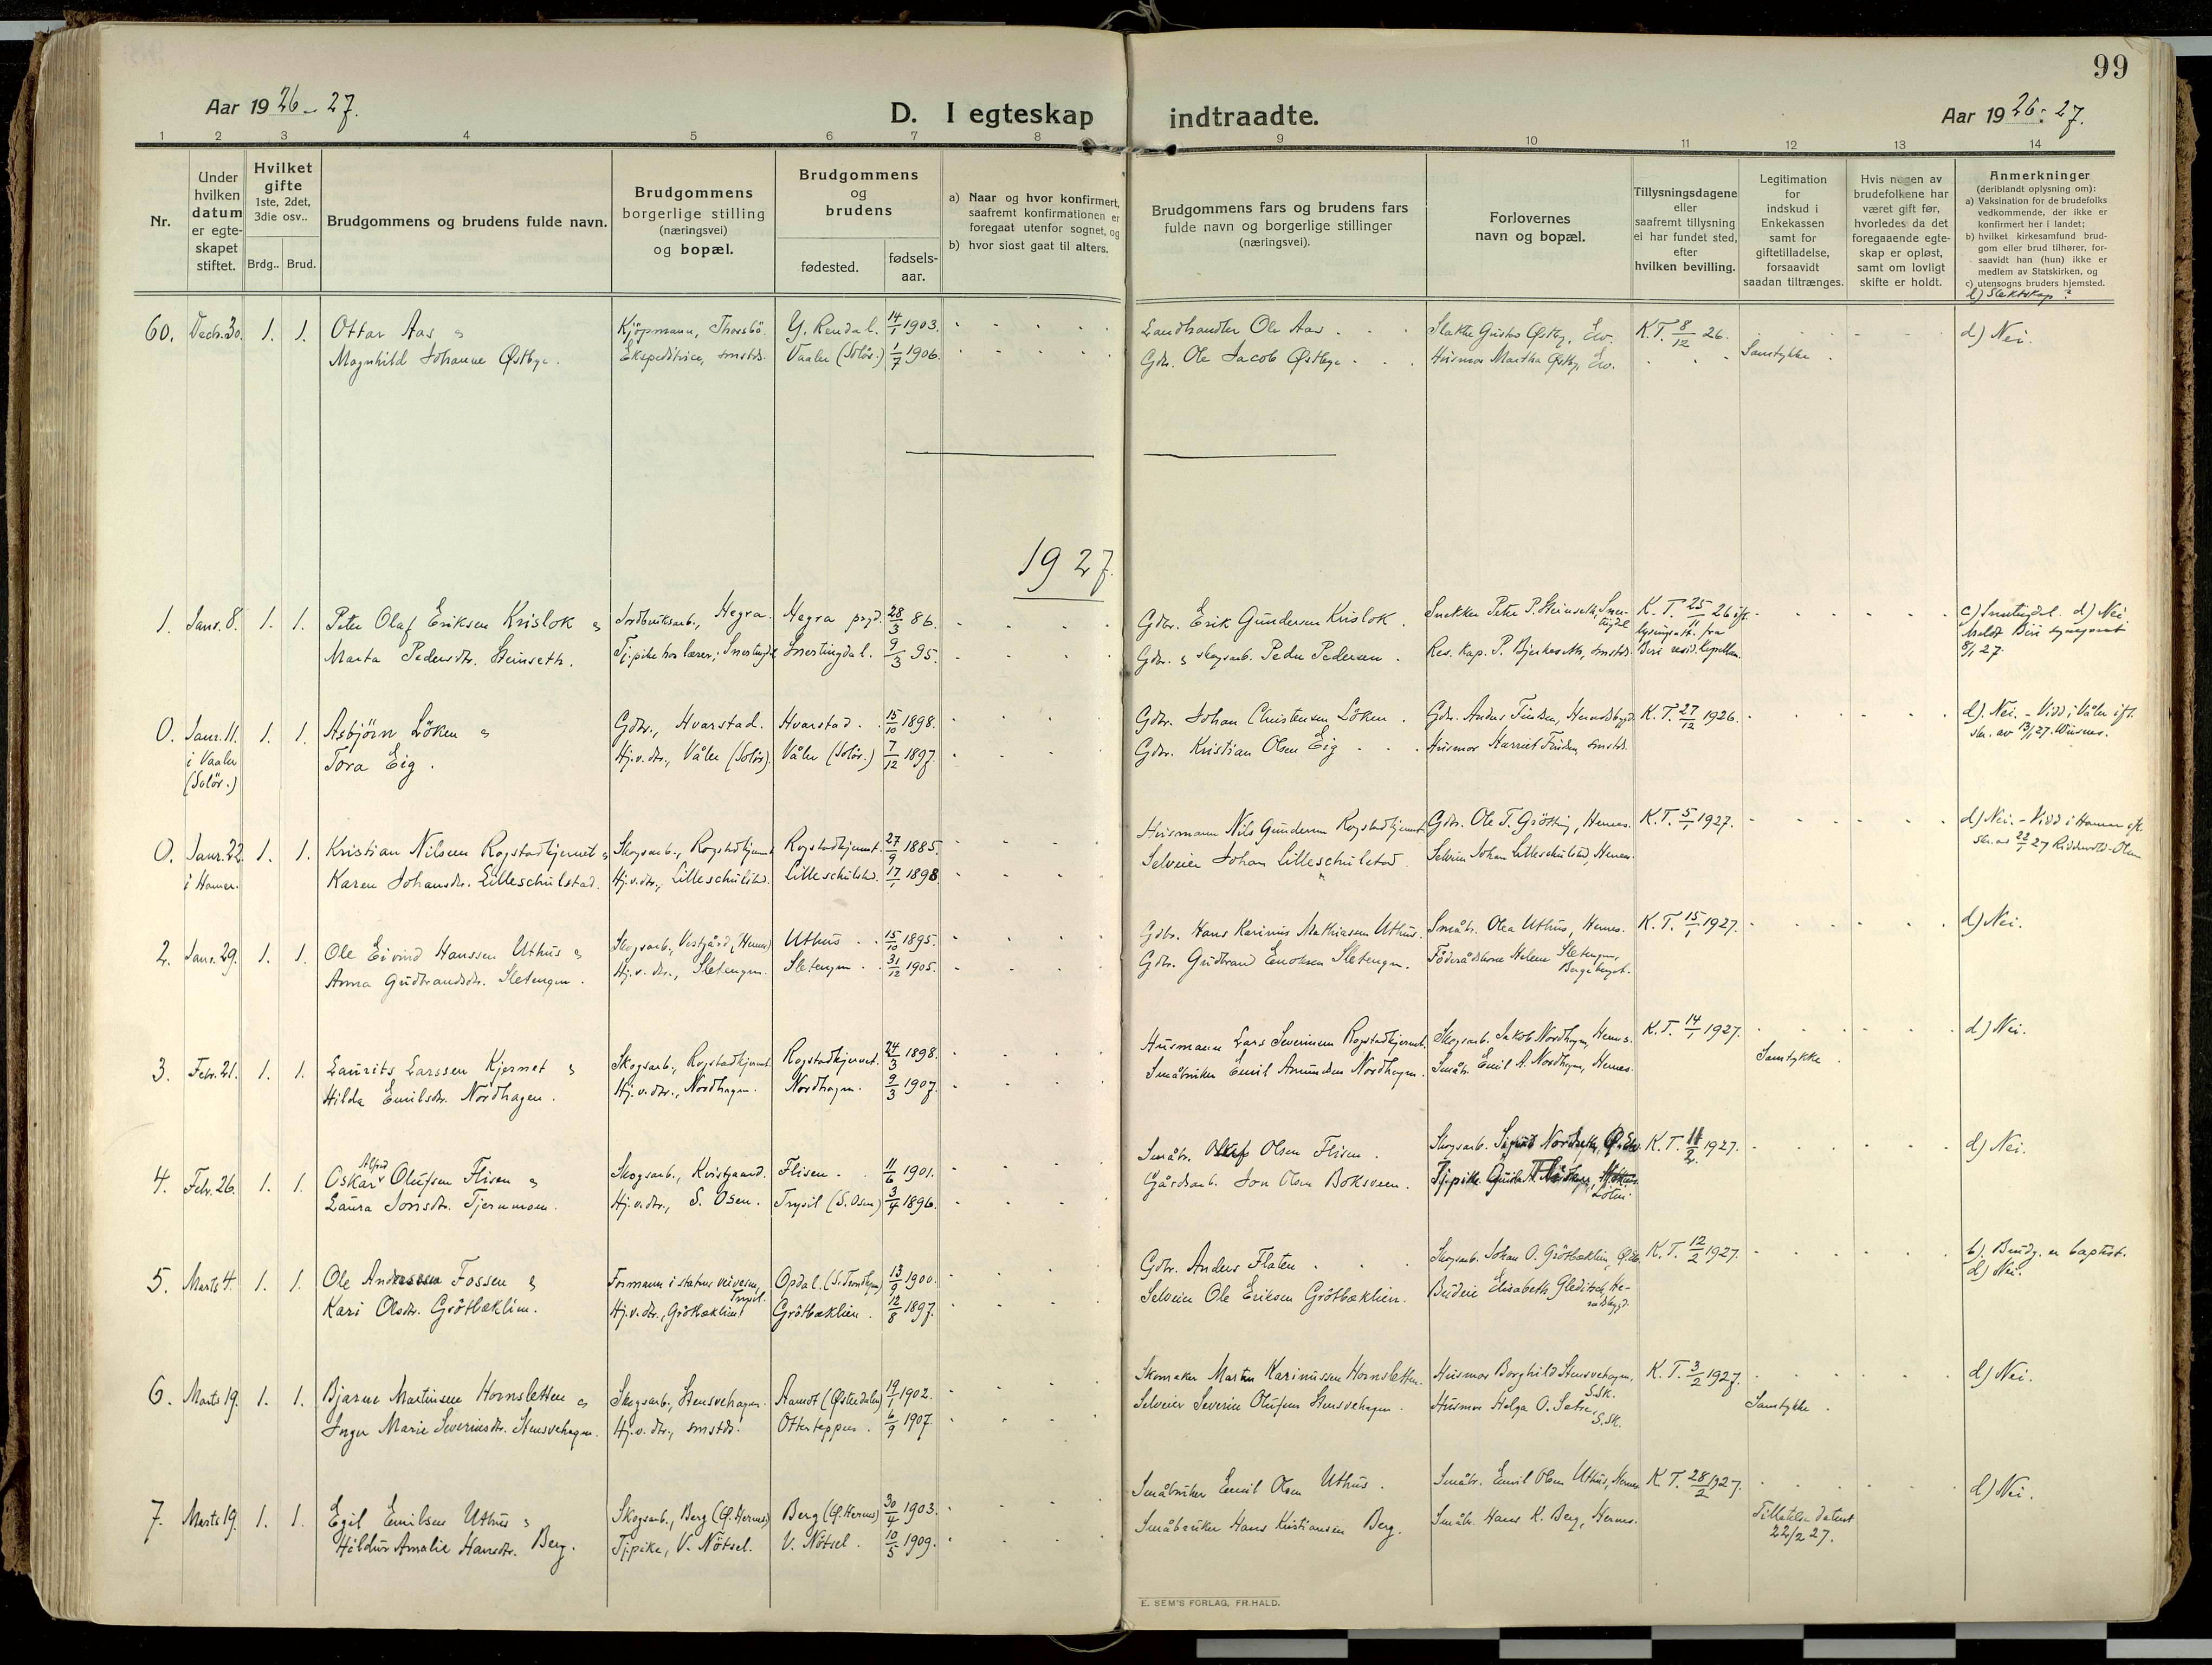 99
Aar 1926-27.
D. I egteskap indtraadte.
Aar 1926-27.
1 2 3 4 5 6 7 8 9 10 11 12 13 14
Nr.
Under hvilken datum er egteskapet stiftet.
Hvilket gifte 1ste, 2det, 3die osv..
Brdg.. Brud.
Brudgommens og brudens fulde navn.
Brudgommens borgerlige stilling (næringsvei) og bopæl.
Brudgommens og brudens
fødested.
fødselsaar.
a) Naar og hvor konfirmert, saafremt konfirmationen er foregaat utenfor sognet, og
b) hvor sidst gaat til alters.
Brudgommens fars og brudens fars fulde navn og borgerlige stillinger (næringsvei).
Forlovernes navn og bopæl.
Tillysningsdagene eller saafremt tillysning ei har fundet sted, efter hvilken bevilling.
Legitimation for indskud i Enkekassen samt for giftetilladelse, forsaavidt saadan tiltrænges.
Hvis nogen av brudefolkene har været gift før, hvorledes da det foregaaende egteskap er opløst, samt om lovligt skifte er holdt.
Anmerkninger (deriblandt oplysning om):
a) Vaksination for de brudefolks vedkommende, der ikke er konfirmert her i landet;
b) hvilket kirkesamfund brudgom eller brud tilhører, forsaavidt han (hun) ikke er medlem av Statskirken, og
c) utensogns bruders hjemsted.
d) Slektskap?
60. Decb. 30. 1. 1. Ottar Aas & Kjøpmann, Y. Rendal. 14/1 1903. Landhandler Ole Aas K.T. 8/12 26. d) Nei.
Magnhild Johanne Østbye. Ekspeditrice, smstds. Vaaler (Solør.) 1/7 1906. Gdbr. Ole Jacob Østbye Husmor Martha Østby, Samtykke.
1927.
1. Janr. 8. 1. 1. Peter Olaf Eriksen Krislok & Jordbruksarb., Hegra. Hegra 28/3 86. Gdbr. Erik Gundersen Krislok. Snekker Peter P. Steinseth, K.T. 25/11 26 c) Snertingdal. d) Nei.
Marta Pedersdr. Steinseth. Snertingdal Snertingdal. 9/3 95. Gdbr. & skogsarb. Peder Pedersen. Res. kap. P. smstds. Biri 8/1 27.
0. Janr. 11. i Vaaler (Solør.) 1. 1. Asbjörn Löken & Gdbr., Hvarstad. Hvarstad. 15/10 1898. Gdbr. Johan Christensen Löken. Gdbr. K.T. 27/12 1926. d). Nei. - Viet i Våler
Tora Eig. Hj.v.dtr., Våler (Solör). Våler (Solör.) 7/12 1897. Gdbr. Kristian Olsen Eig Husmor Harriet smstds.
0. Janr. 22. i Hamar. 1. 1. Kristian Nilssen Rogstadkjernet & Skogsarb., Rogstadkjernet Rogstadkjernet. 27/9 1885. Husmann Nils Gundersen Rogstadkjernet. Gdbr. Ole T. Grötting, Hernes. K.T. 5/1 1927. d) Nei. - Viet i Hamar
Karen Johansdr. Lilleschulstad. Hj.v.dtr., Lilleschulstad. Lilleschulstad. 17/1 1898. Selveier Johan Lilleschulstad. Selveier Johan Lilleschulstad, Hernes.
2. Janr. 29. 1. 1. Ole Eivind Hanssen Uthus & Skogsarb., Vestgård (Hernes) Uthus 15/10 1895. Gdbr. Hans Karinus Mathiassen Uthus. Småbr. Olea Uthus, Hernes. K.T. 15/1 1927. d) Nei.
Anna Gudbrandsdr. Sletengen. Hj.v.dtr., Sletengen. Sletengen 31/12 1905. Gdbr. Gudbrand Enoksen Sletengen. Föderådskone Helene Sletengen,
3. Febr. 21. 1. 1. Laurits Larssen Kjernet & Skogsarb., Rogstadkjernet. Rogstadkjernet. 24/3 1898. Husmann Lars Severinsen Rogstadkjernet. Skogsarb. Jakob Nordhagen, Hernes. K.T. 14/1 1927. d) Nei.
Hilda Emilsdr. Nordhagen. Hj.v.dtr., Nordhagen. Nordhagen. 9/3 1907. Småbruker Emil Amundsen Nordhagen. Småbr. Emil A. Nordhagen, Hernes. Samtykke.
4. Febr. 26. 1. 1. Oskar Alfred Olufsen Flisen & Skogsarb., Kvistgaard. Flisen. 11/6 1901. Småbr. Oluf Olsen Flisen. Skogsarb. K.T. 11/2 1927. d) Nei.
Laura Jonsdtr. Tjernmoen. Hj.v.dtr., S. Osen. Trysil (S. Osen) 3/4 1896. Gårdsarb. Jon Olsen Boksveen. Tj.pike Löten.
5. Marts 4. 1. 1. Ole Anderssen Fossen & Formann i statens veivesen, Trysil. Opdal. 13/9 1900. Gdbr. Anders Flaten. Skogsarb. Johan O. Grötbæklien K.T. 12/2 1927. b). Brudg. er baptist.
d) Nei.
Kari Olsdtr. Grötbæklien. Hj.v.dtr., Grötbæklien Grötbæklien. 12/8 1897. Selveier Ole Eriksen Grötbæklien. Budeie Elisabeth Gleditsch, Heradsbygd.
6. Marts 19. 1. 1. Bjarne Martinsen Hornsletten & Skogsarb., Stensvehagen. Aamot (Østerdalen) 19/1 1902. Skomaker Martin Karinussen Hornsletten. Husmor Borghild Stensvehagen, S.Sk. K.T. 3/2 1927. d) Nei.
Inger Marie Severinsdr. Stensvehagen. Hj.v.dtr., smstds. Otterteppen. 6/9 1907. Selveier Severin Olufsen Stensvehagen. Husmor Helga O. Setre, S.Sk. Samtykke.
7. Marts 19. 1. 1. Egil Emilsen Uthus & Skogsarb., Berg (Ø. Hernes) Berg (Ø. Hernes) 30/4 1903. Småbruker Emil Olsen Uthus. Småbr. Emil Olsen Uthus, Hernes K.T. 28/2 1927. d) Nei.
Hildur Amalie Hansdtr. Berg. Tj.pike, V. Nötsel. V. Nötsel. 10/5 1909. Småbruker Hans Kristiansen Berg. Småbr. Hans K. Berg, Hernes. Tillatelse datert 22/2 27.
E. SEM'S FORLAG, FR.HALD.